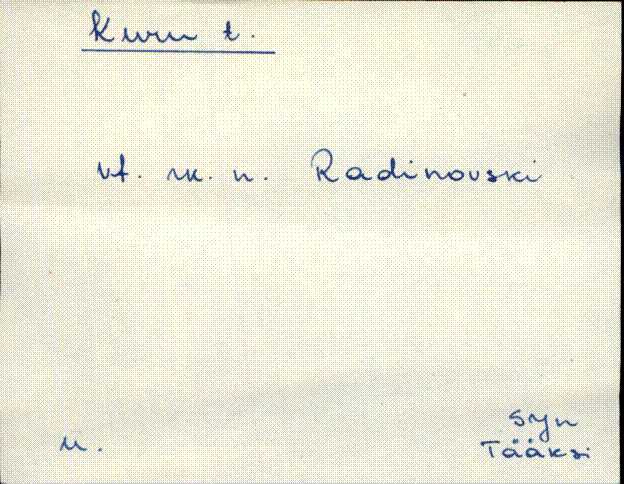 Kuru t.
vt. m. n. Radinovski
Syn
n. Tääksi